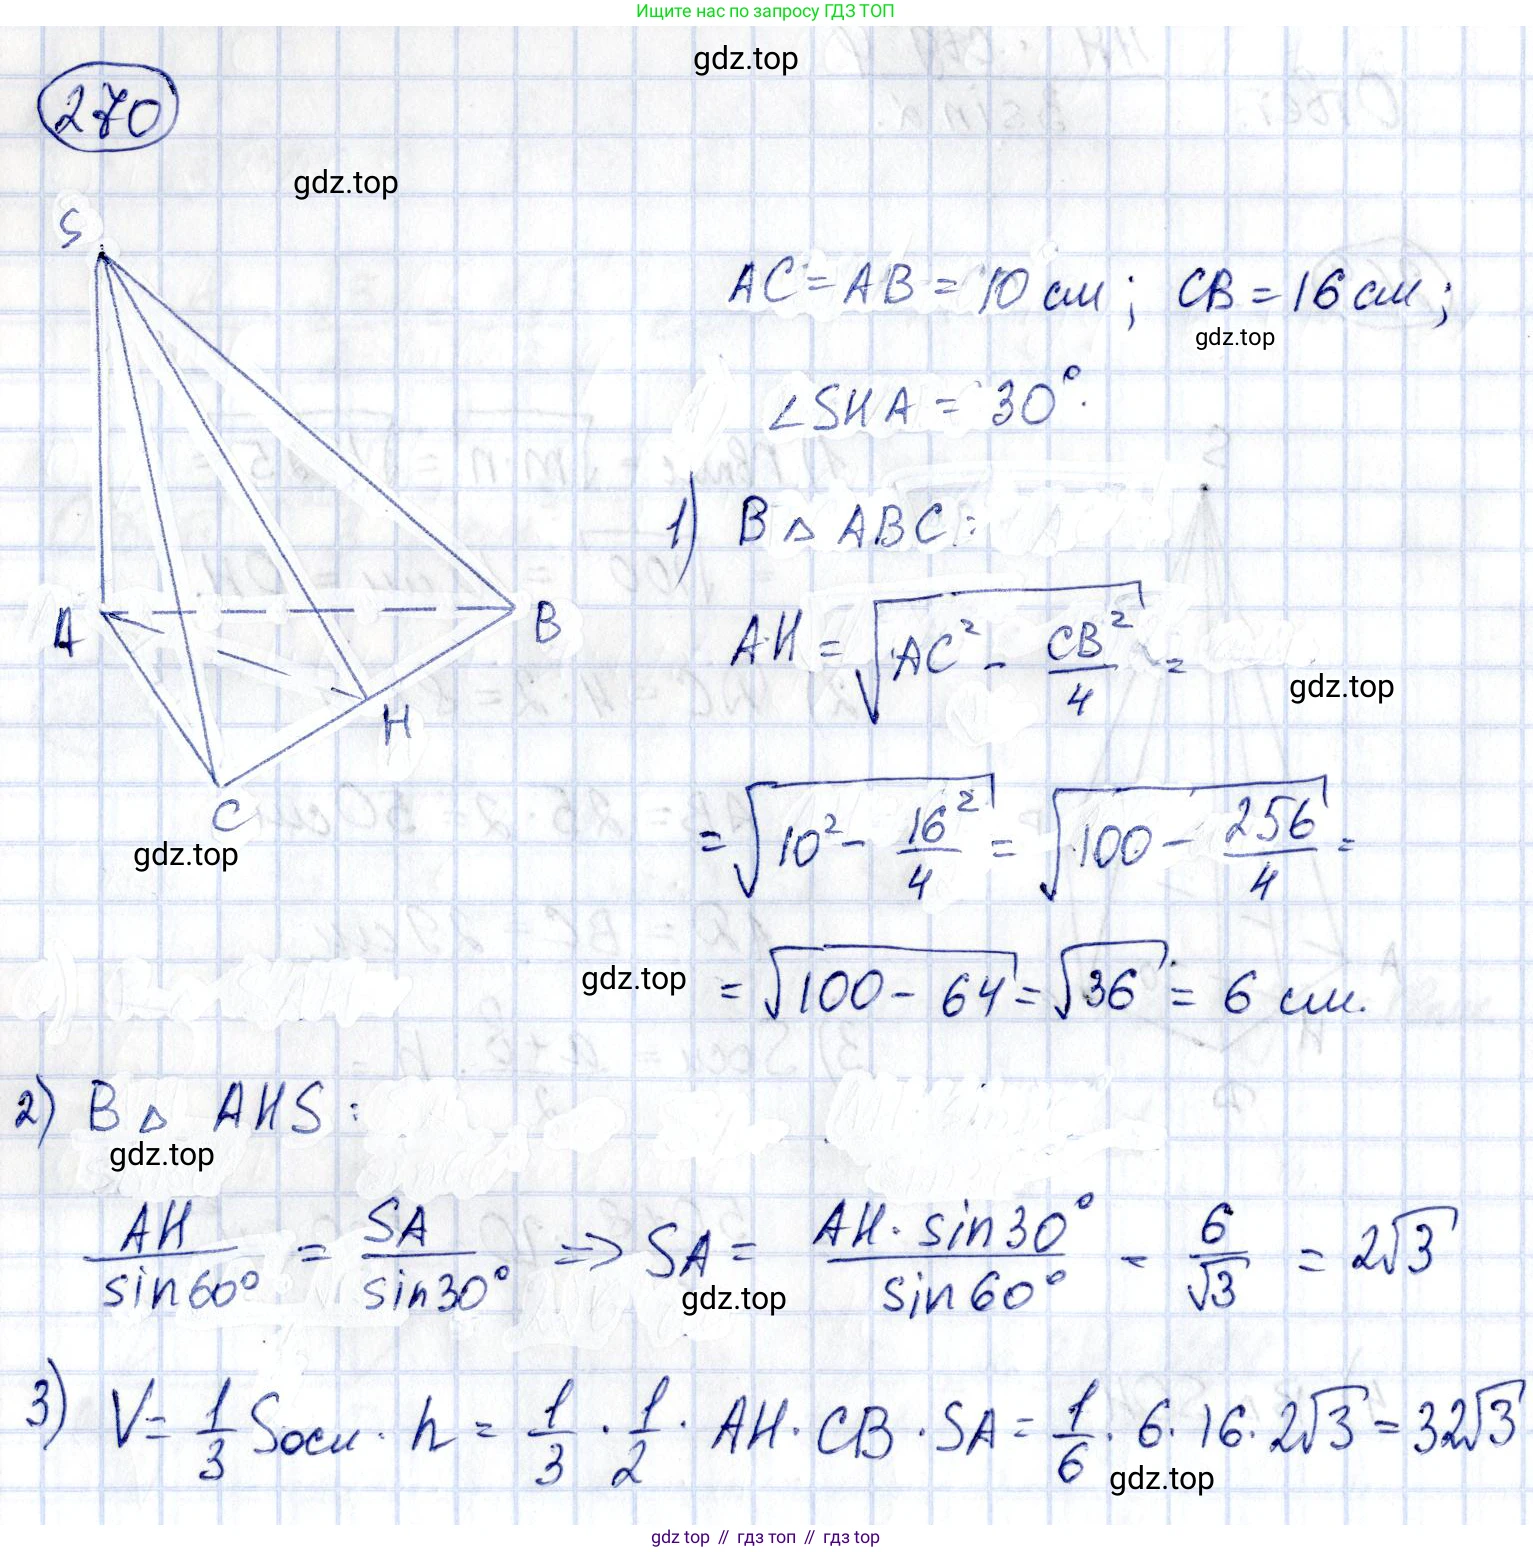 Ищите нас по запросу ГДЗ ТОП
gdz.top
270
gdz.top
S
AC = AB = 10 см; CB = 16 см;
gdz.top
∠SHA = 30°.
1) В △ ABC:
A
B
AH = √(AC² - CB²/4) =
gdz.top
H
C
gdz.top
= √(10² - 16²/4) = √(100 - 256/4) =
gdz.top
= √(100 - 64) = √36 = 6 см.
2) В △ AHS:
gdz.top
AH/sin60° = SA/sin30° => SA = AH · sin30°/sin60° - 6/√3 = 2√3
gdz.top
3) V = 1/3 Sосн · h = 1/3 · 1/2 · AH · CB · SA = 1/6 · 6 · 16 · 2√3 = 32√3
gdz.top
gdz top // гдз топ // гдз top